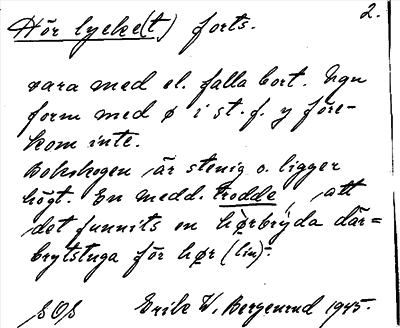 2.
Hör lycke(t) forts.
vara med el. falla bort. Ngn
form med ø i st. f. y före-
kom inte.
Bokskogen är stenig o. ligger
högt. En medd. trodde, att
det funnits en hørbryda där =
brytstuga för hør (lin).
SOS Erik W. Bergenrud 1945.